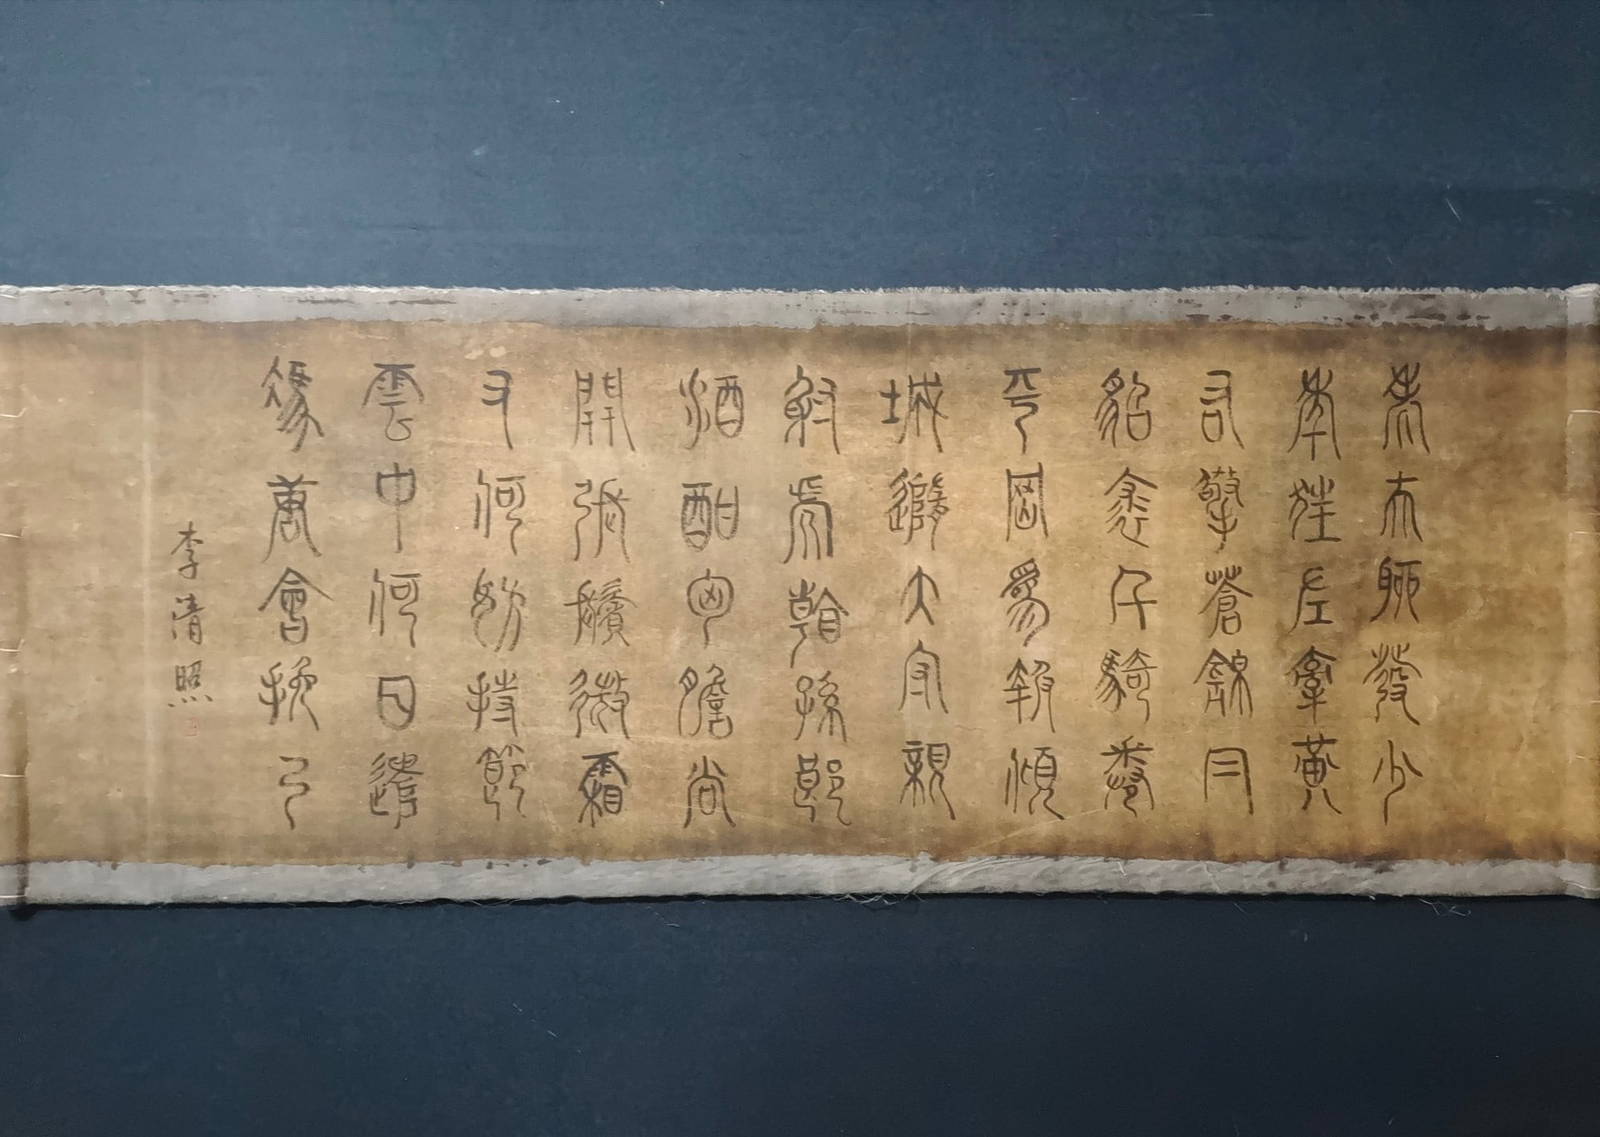 老夫聊發少
年狂左牽黃
右擎蒼錦冃
貂裘千騎卷
平岡為報傾
城隨大守親
射虎看孫郎
酒酣匈膽尚
開張鬢微霜
又何妨持節
雲中何日遣
馮唐會挽弓
李清照